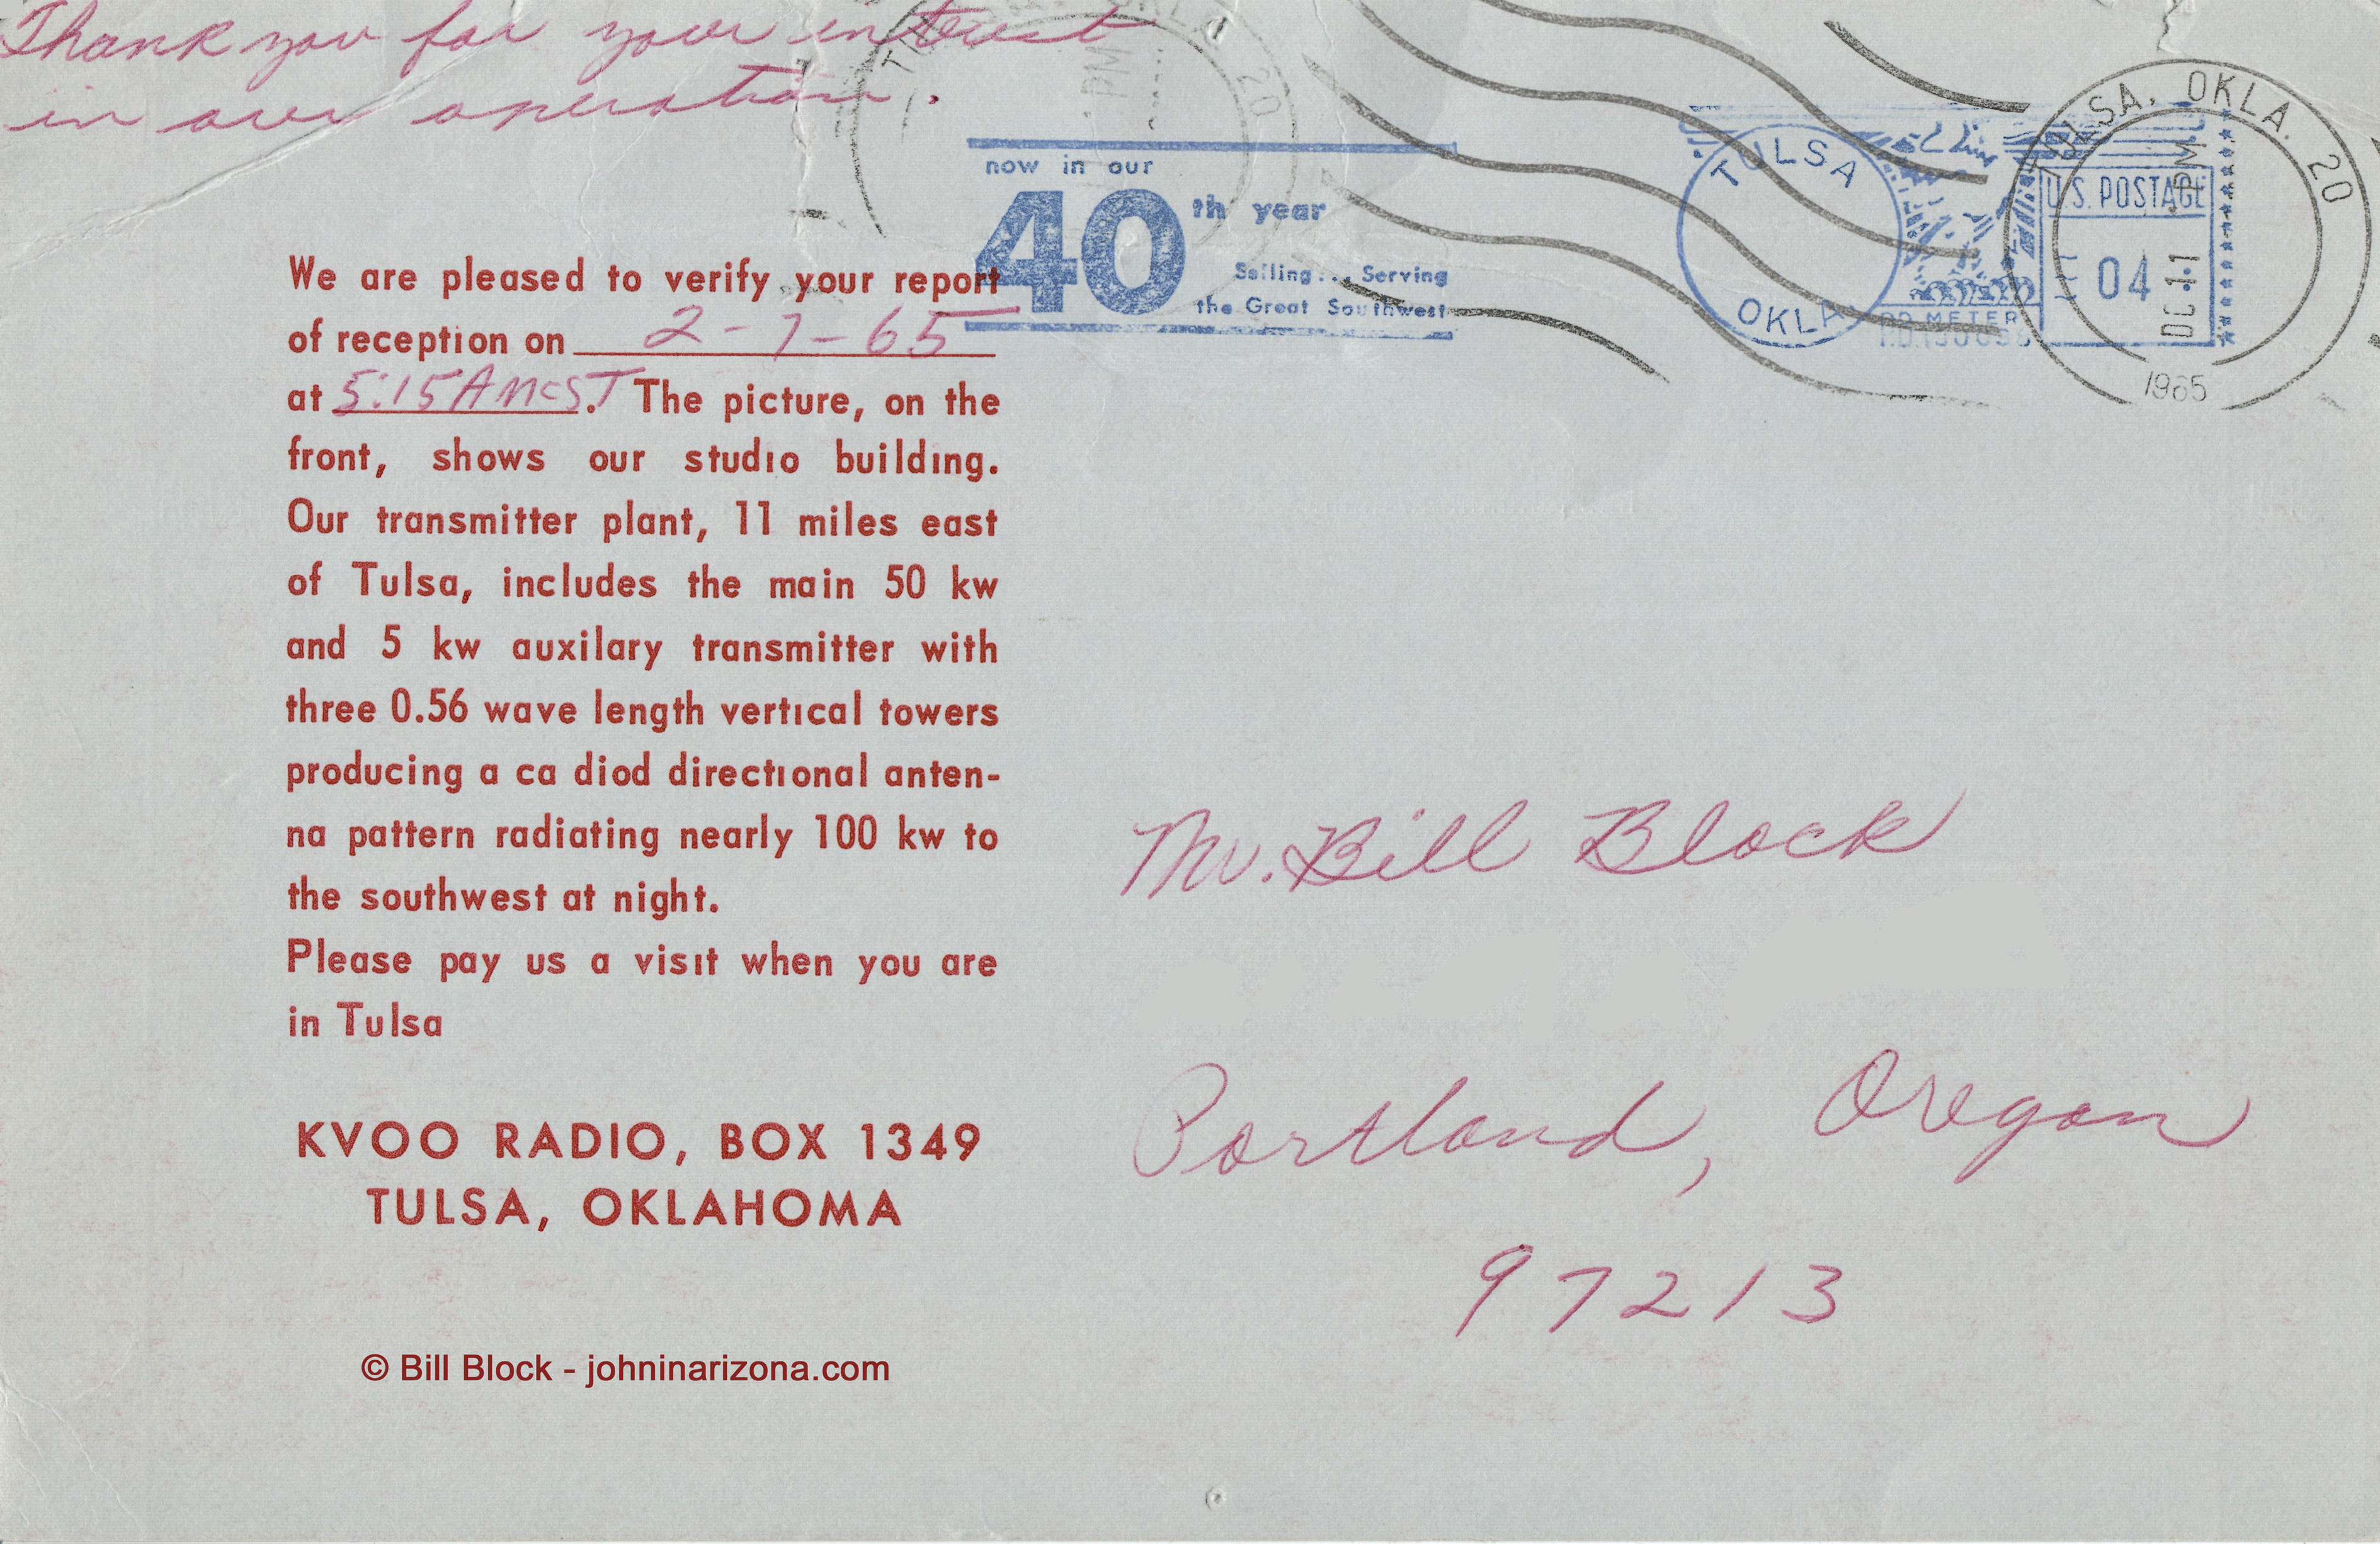 Thank you for your interest
in our operation.
now in our
40th year
Selling... Serving
the Great Southwest
TULSA
OKLA
U.S. POSTAGE
04
METER
TULSA, OKLA. 20
PM
DC 11
1965
We are pleased to verify your report
of reception on 2-7-65
at 5:15 AM CST. The picture, on the
front, shows our studio building.
Our transmitter plant, 11 miles east
of Tulsa, includes the main 50 kw
and 5 kw auxilary transmitter with
three 0.56 wave length vertical towers
producing a ca diod directional anten-
na pattern radiating nearly 100 kw to
the southwest at night.
Please pay us a visit when you are
in Tulsa
KVOO RADIO, BOX 1349
TULSA, OKLAHOMA
Mr. Bill Block
Portland, Oregon
97213
© Bill Block - johninarizona.com